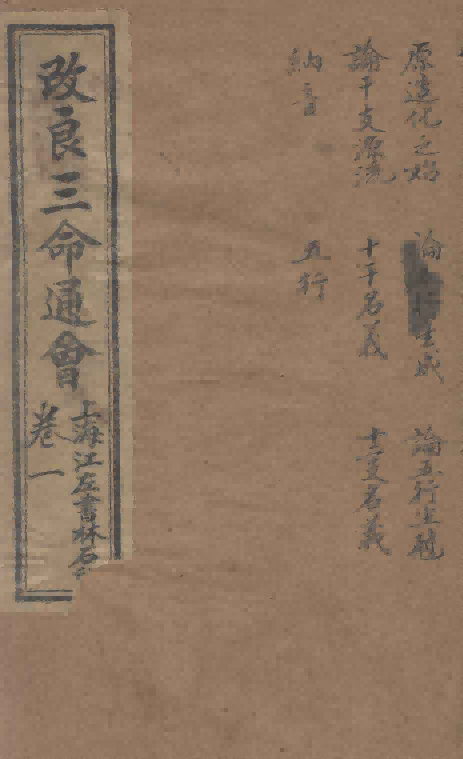 原造化之始 論五行生成 論五行生尅
論干支源流 十干名義 十二支名義
納音 五行
改良三命通會
上海江左書林石
卷一